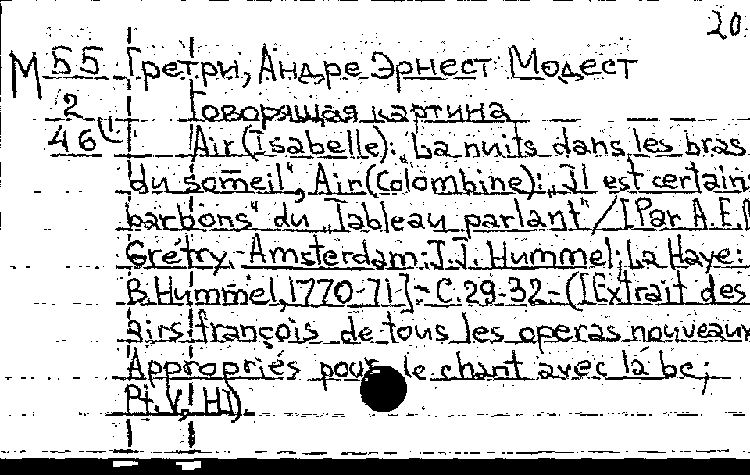 20
М 55 Гретри, Андре Эрнест Модест
2 Говорящая картина
46 Air (Isabelle): „La nuits dans les bras
du someil", Air (Colombine): „Il est certains
barbons" du „Tableau parlant" / [Par A.E.
Grétry. Amsterdam: J.J. Hummel; La Haye:
B. Hummel, 1770-71] - C. 29-32 - ([Extrait des
airs françois de tous les operas nouveaux
Appropriés pour le chant avec la be;
Pt. V, HI).